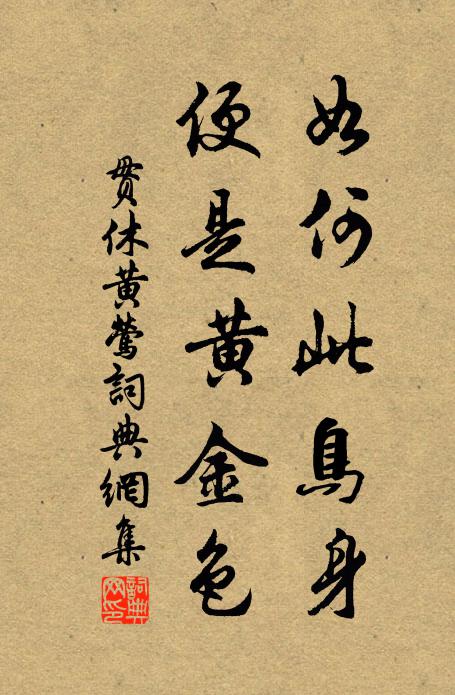 如何此鳥身
便是黄金色
貫休黄鶯詞典網集
詞典網印